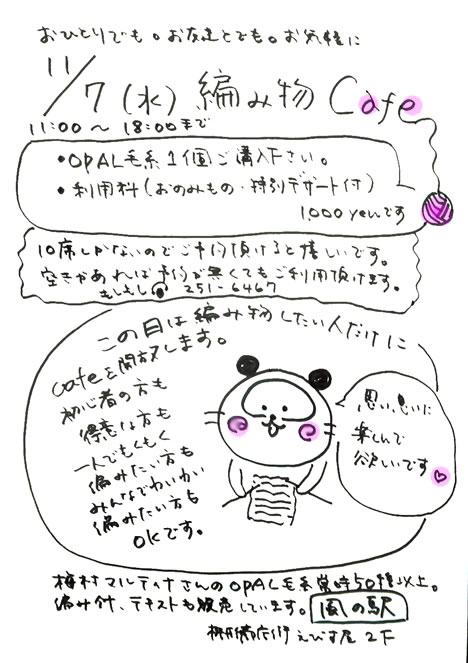 おひとりでも。お友達とでも。お気軽に
11/7(水) 編み物 Cafe
11:00〜18:00まで
・OPAL毛糸1個ご購入下さい。
・利用料(おのみもの・特別デザート付)
1,000yenです
10席しかないのでご予約頂けると嬉しいです。
空きがあれば予約が無くてもご利用頂けます。
もしもし 251-6467
この日は編み物したい人だけに
cafeを開放します。
初心者の方も
得意な方も
一人でもくもく
編みたい方も
みんなでわいわい
編みたい方も
OKです。
思い思いに
楽しんで
欲しいです
梅村マルティナさんのOPAL毛糸常時50種以上。
編み針、テキストも販売しています。 風の駅
えびす屋2F